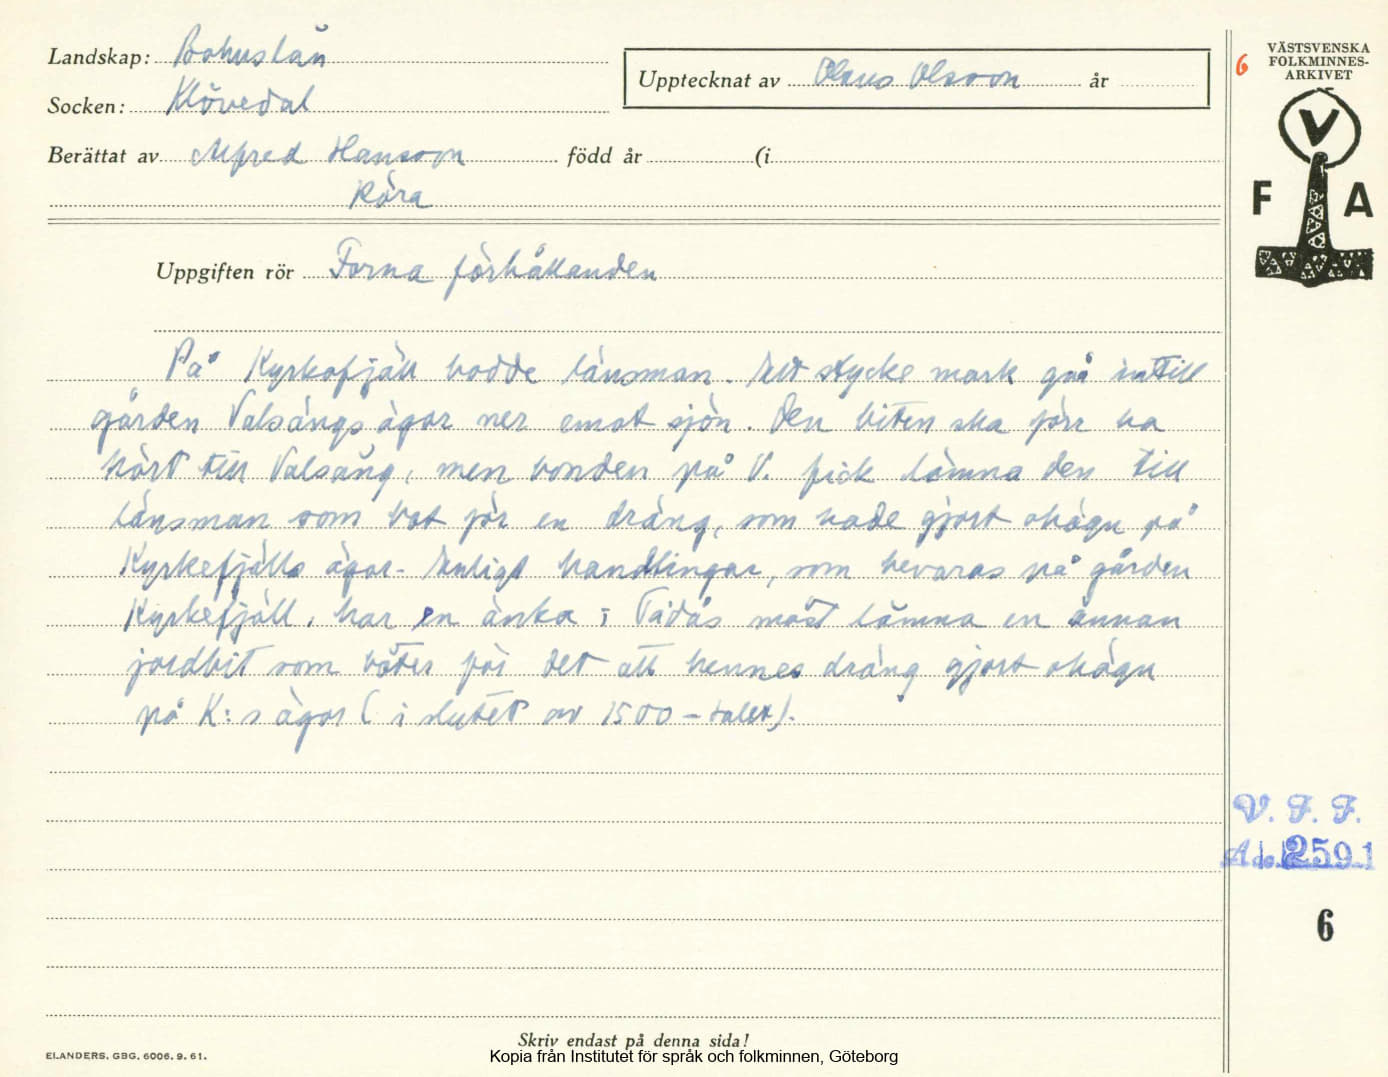 Landskap: Bohuslän
Socken: Klövedal
Upptecknat av Olaus Olsson år
Berättat av Alfred Hansson född år (i
Röra
6
VÄSTSVENSKA
FOLKMINNES-
ARKIVET
V
F A
Uppgiften rör Forna förhållanden
På Kyrkefjäll bodde länsman. Ett stycke mark går intill
gården Valsängs ägor ner emot sjön. Den biten ska förr ha
hört till Valsäng, men bonden på V. fick lämna den till
länsman som bot för en dräng, som hade gjort ohägn på
Kyrkefjälls ägor. Enligt handlingar, som bevaras på gården
Kyrkefjäll, har en änka i Tådås måst lämna en annan
jordbit som böter för det att hennes dräng gjort ohägn
på K:s ägor (i slutet av 1500-talet).
V. F. F.
Acc. 2591
6
Skriv endast på denna sida!
ELANDERS, GBG. 6006. 9. 61.
Kopia från Institutet för språk och folkminnen, Göteborg